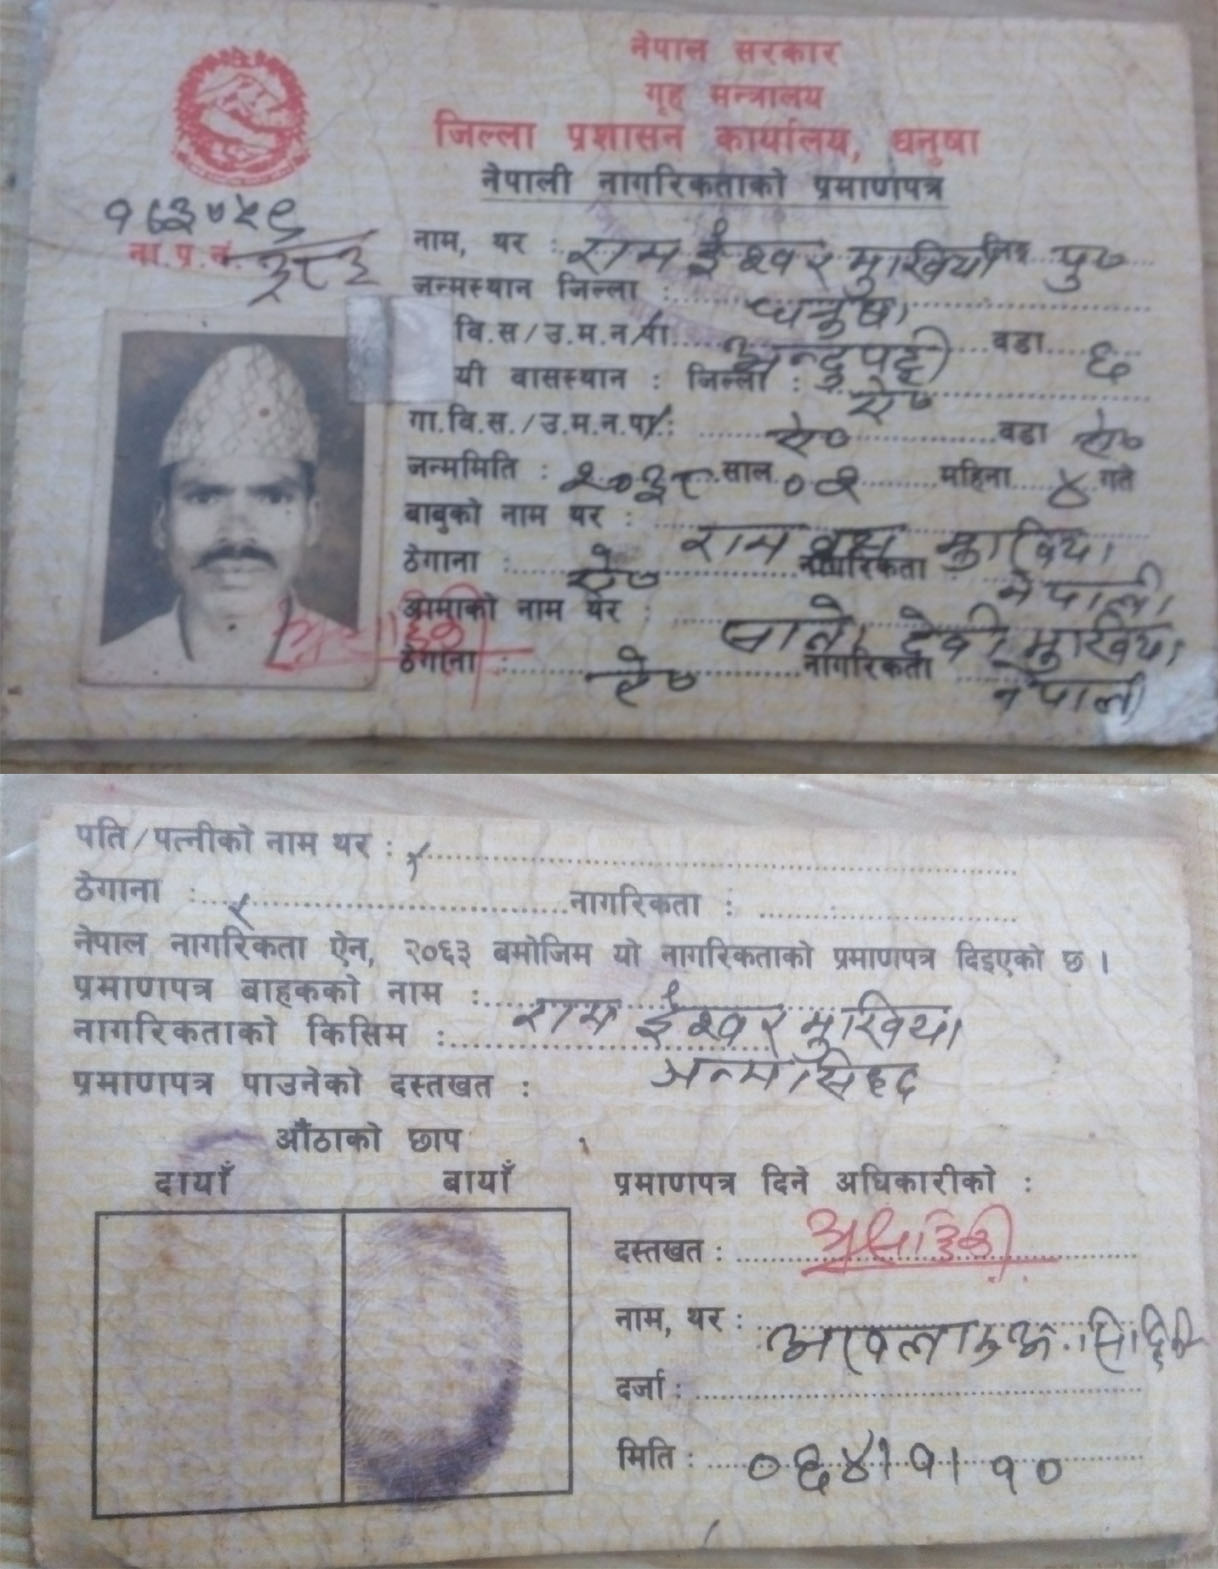 नेपाल सरकार
गृह मन्त्रालय
जिल्ला प्रशासन कार्यालय, धनुषा
नेपाली नागरिकताको प्रमाणपत्र
ना.प्र.नं. ३८३
नाम, थर : राम ईश्वर मुखिया लिङ्ग पु०
जन्मस्थान जिल्ला : धनुषा
वि.स/उ.म.न/पा. अन्दुपट्टी वडा ६
यी बासस्थान : जिल्ला : ऐ०
गा.वि.स./उ.म.न.पा.: ऐ० वडा ऐ०
जन्ममिति : २०३८ साल ०२ महिना ४ गते
बाबुको नाम थर : राम मुखिया
ठेगाना : ऐ० नागरिकता नेपाली
आमाको नाम थर : देवी मुखिया
ठेगाना : ऐ० नागरिकता नेपाली
पति/पत्नीको नाम थर : ×
ठेगाना : × नागरिकता :
नेपाल नागरिकता ऐन, २०६३ बमोजिम यो नागरिकताको प्रमाणपत्र दिइएको छ ।
प्रमाणपत्र बाहकको नाम : राम ईश्वर मुखिया
नागरिकताको किसिम : जन्मसिद्ध
प्रमाणपत्र पाउनेको दस्तखत :
औंठाको छाप
दायाँ बायाँ
प्रमाणपत्र दिने अधिकारीको :
दस्तखत :
नाम, थर :
दर्जा :
मिति : ०६४।१।१०